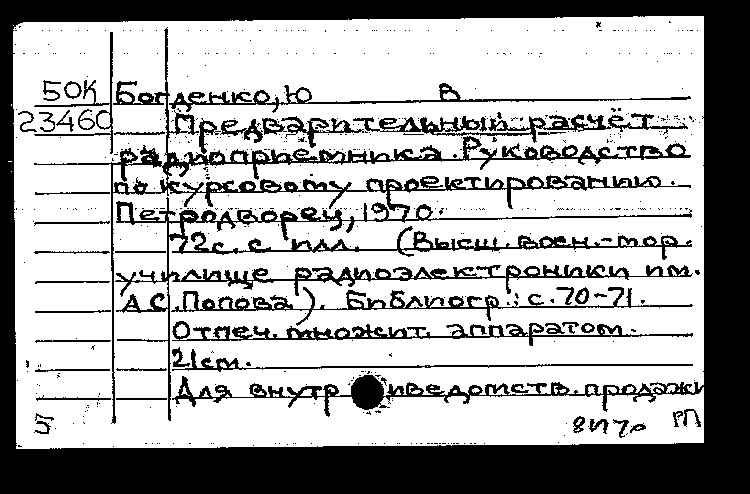 50К Богденко, Ю В
23460 Предварительный расчёт
радиоприемника. Руководство
по курсовому проектированию.
Петродворец, 1970.
72с. с илл. (Высш. воен.-мор.
училище радиоэлектроники им.
А С. Попова). Библиогр.: с. 70-71.
Отпеч. множит. аппаратом.
21см.
Для внутриведомств. продажи